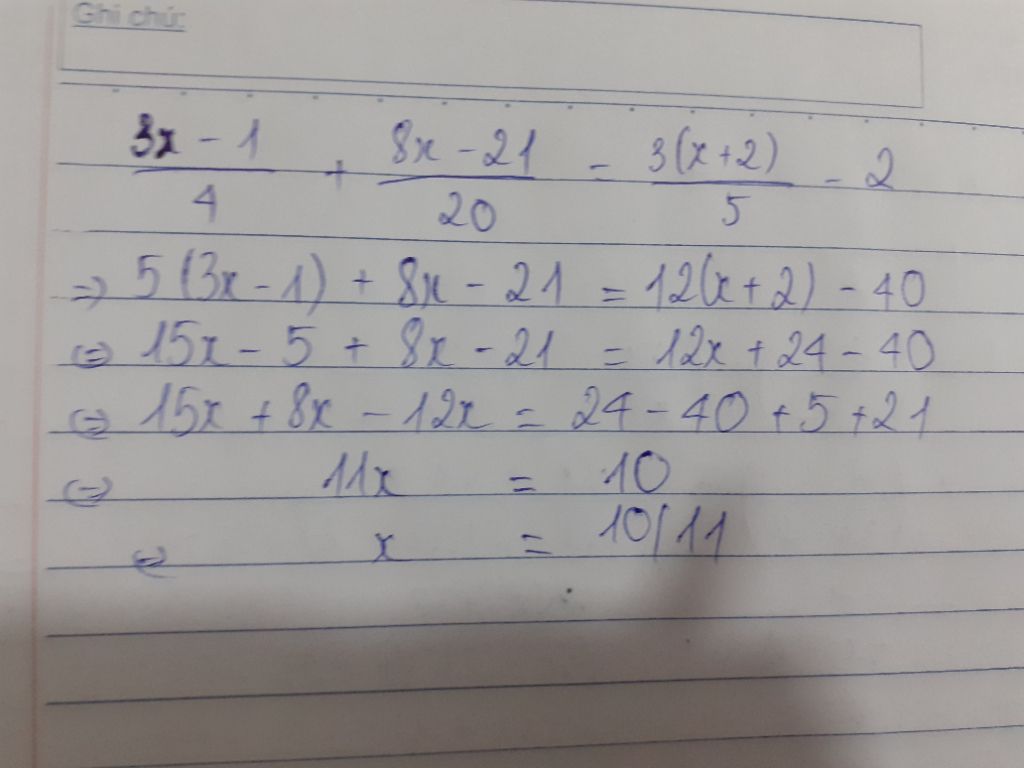 Ghi chú:
3x - 1 / 4 + 8x - 21 / 20 = 3(x+2) / 5 - 2
=> 5(3x - 1) + 8x - 21 = 12(x+2) - 40
<=> 15x - 5 + 8x - 21 = 12x + 24 - 40
<=> 15x + 8x - 12x = 24 - 40 + 5 + 21
<=> 11x = 10
<=> x = 10/11